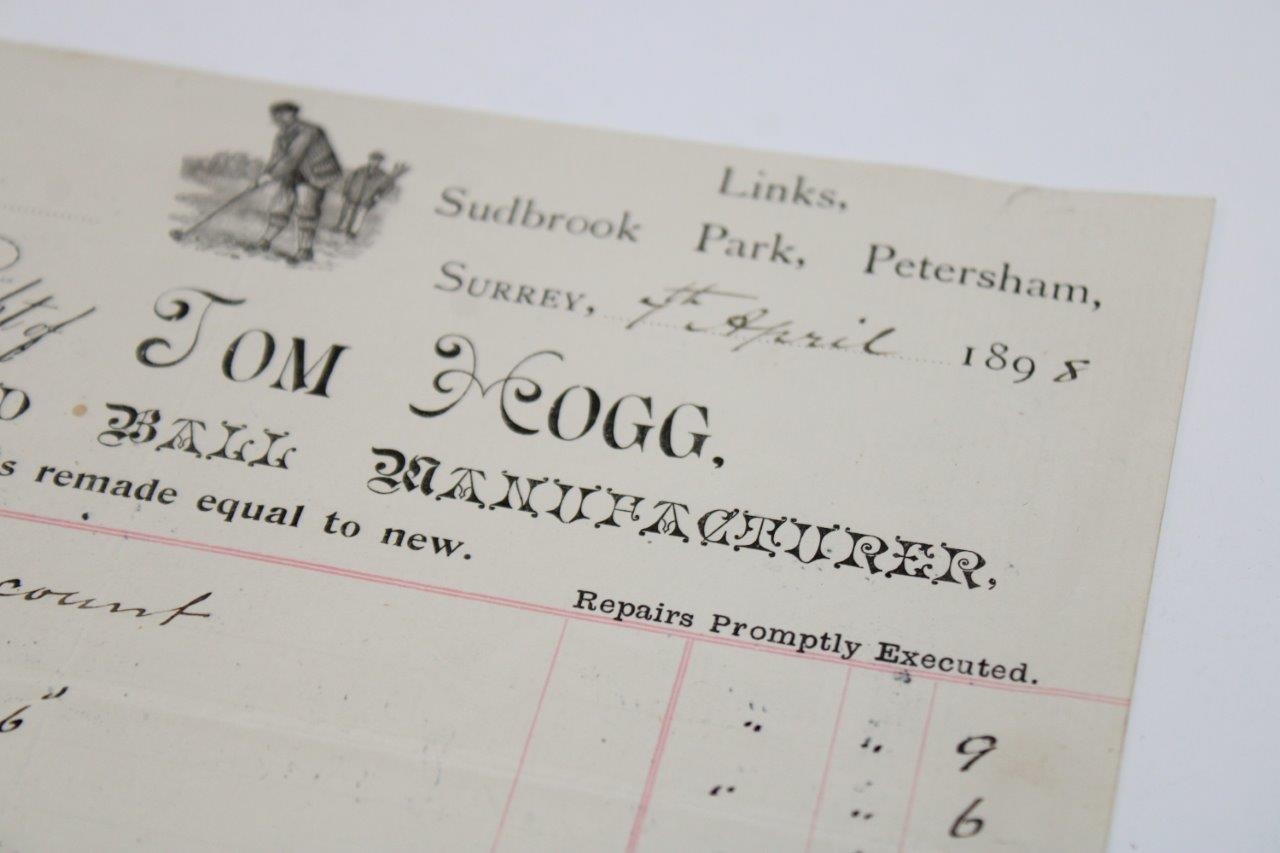 Links,
Sudbrook Park, Petersham,
SURREY, th April 1898
Bt of
TOM HOGG,
D BALL MANUFACTURER,
s remade equal to new.
count
Repairs Promptly Executed.
" " 9
6" " " 6